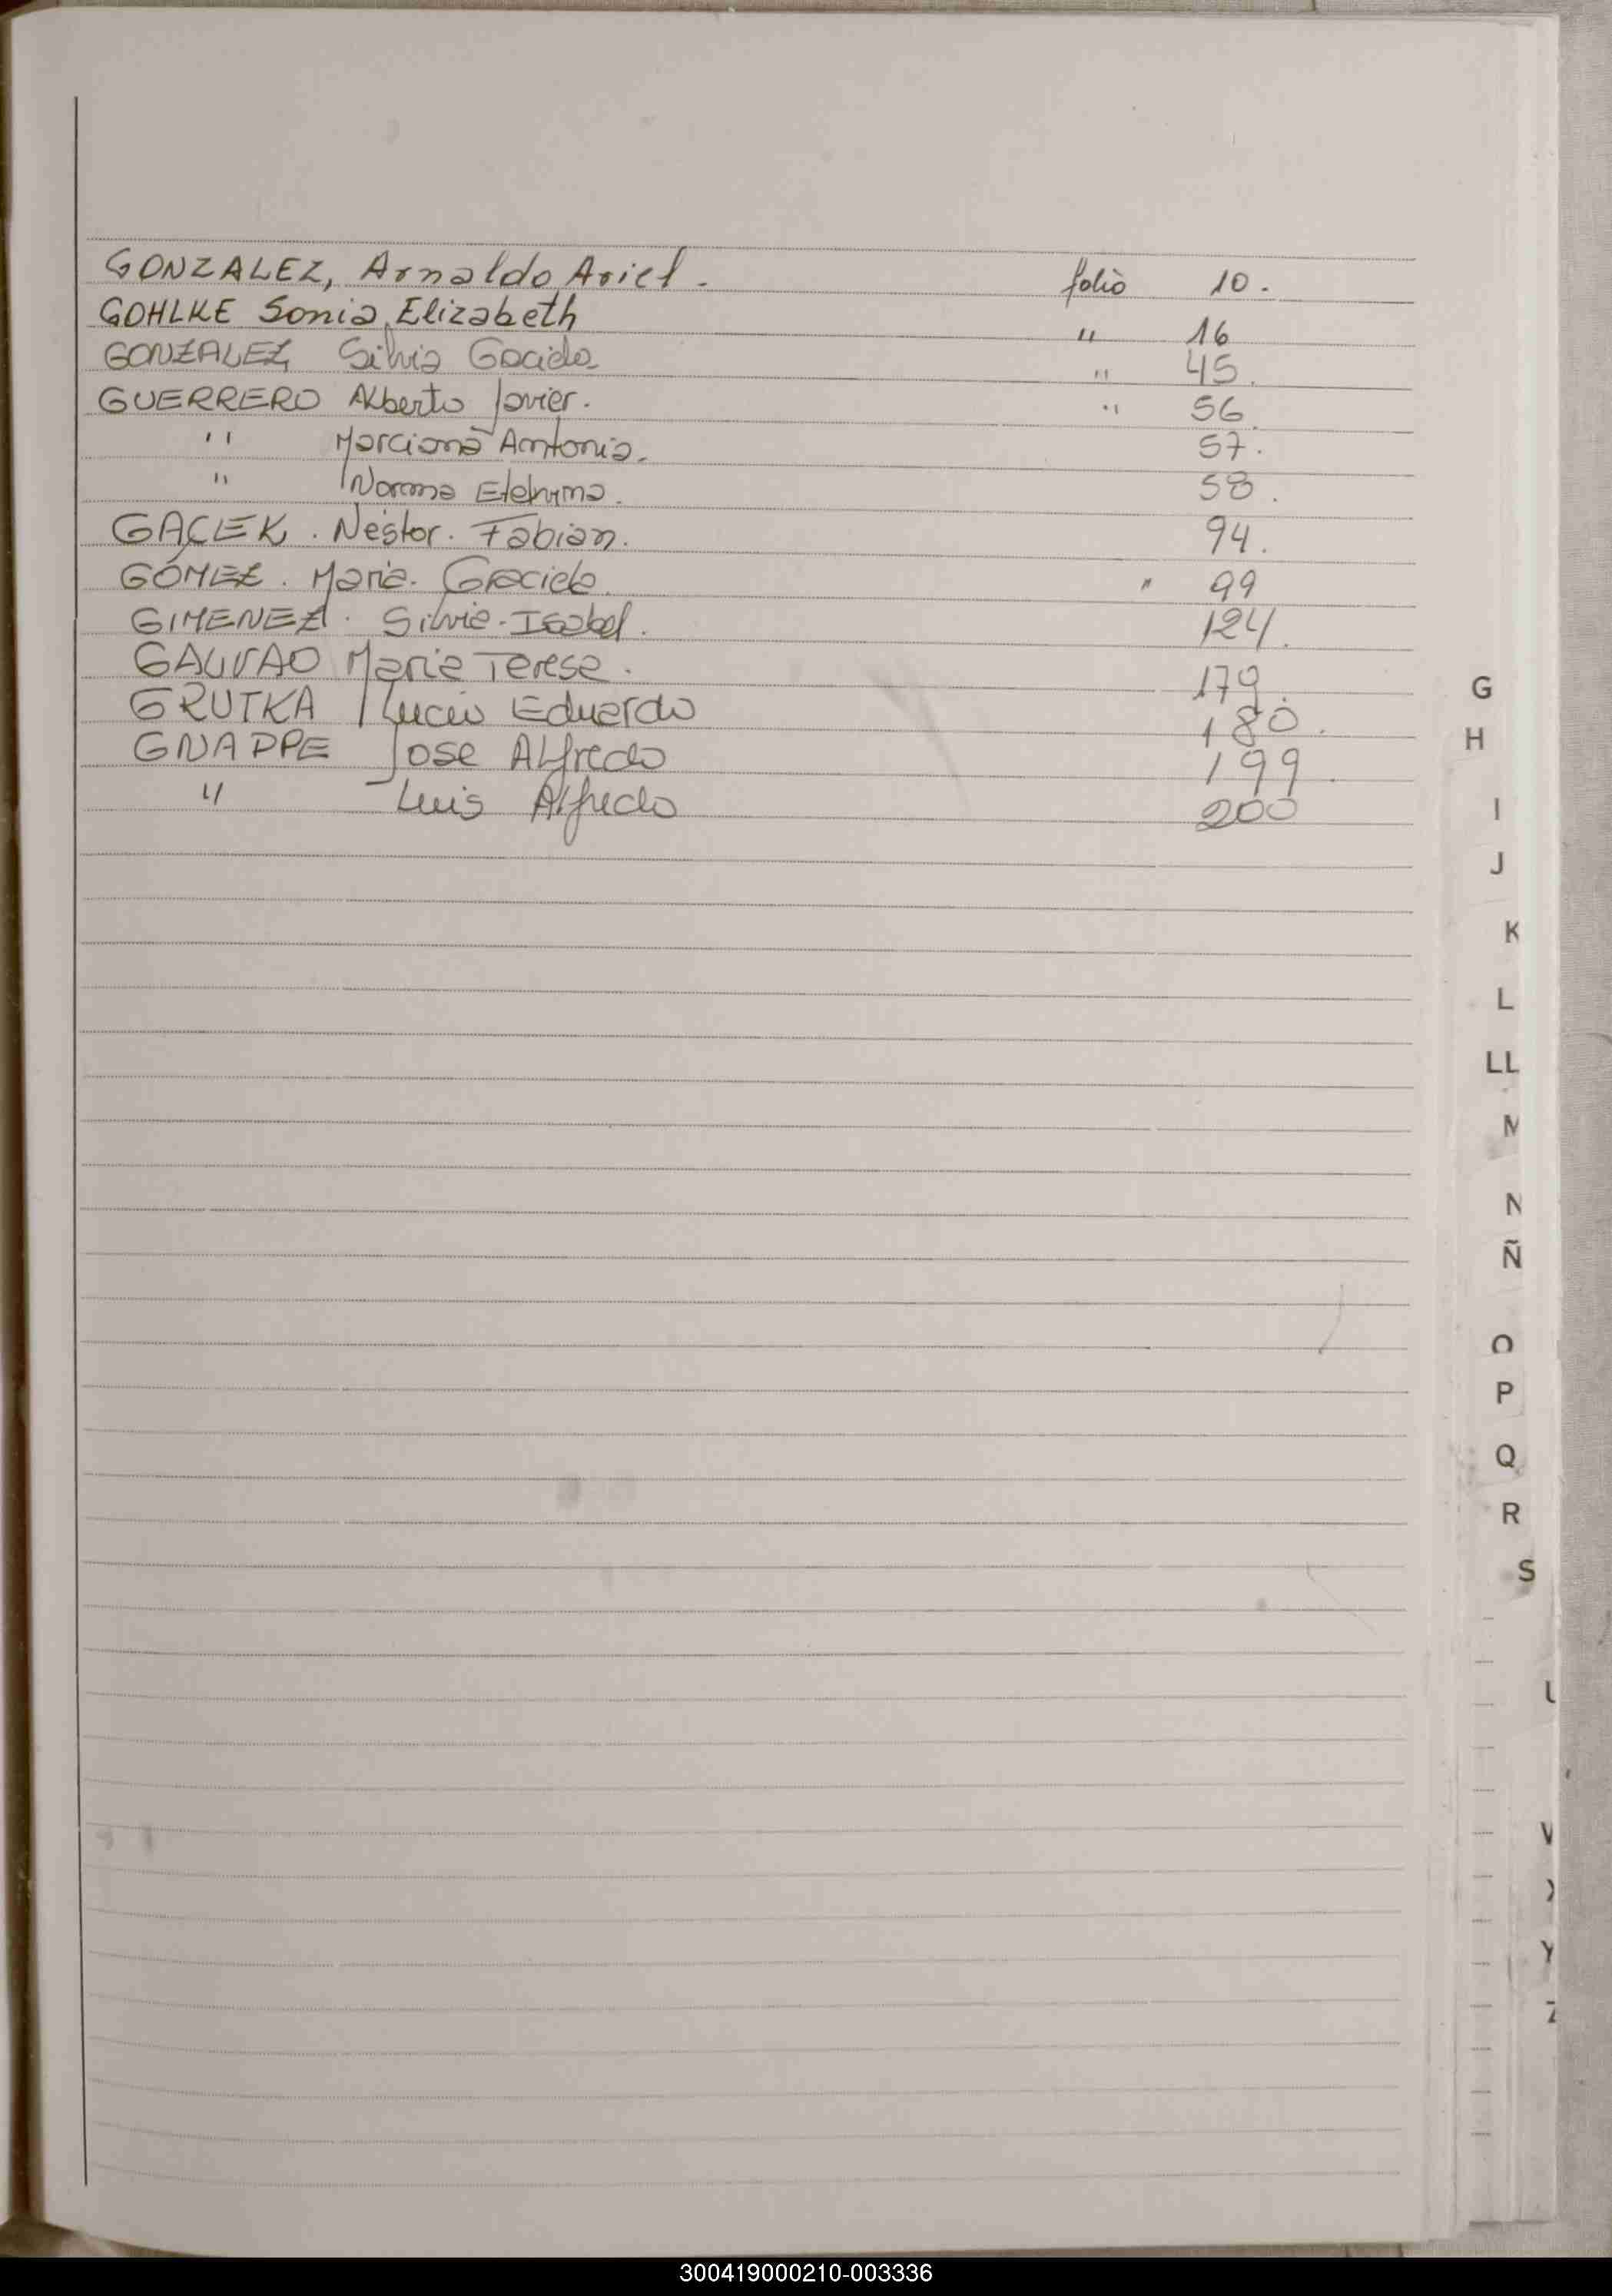 GONZALEZ, Arnaldo Ariel. folio 10.
GOHLKE Sonia Elizabeth " 16
GONZALEZ Silvia Gaciela " 45.
GUERRERO Alberto Javier. " 56.
" Marciana Antonia. 57.
" Norma Etelvina. 58.
GACEK. Néstor. Fabian. 94.
GÓMEZ. Maria. Graciela. " 99
GIMENEZ. Silvia-Isabel. 124.
GALVAO Maria Teresa. 179.
GRUTKA Lucio Eduardo 180.
GNAPPE Jose Alfredo 199.
" Luis Alfredo 200
G
H
I
J
K
L
LL
M
N
Ñ
O
P
Q
R
S
U
V
X
Y
Z
300419000210-003336